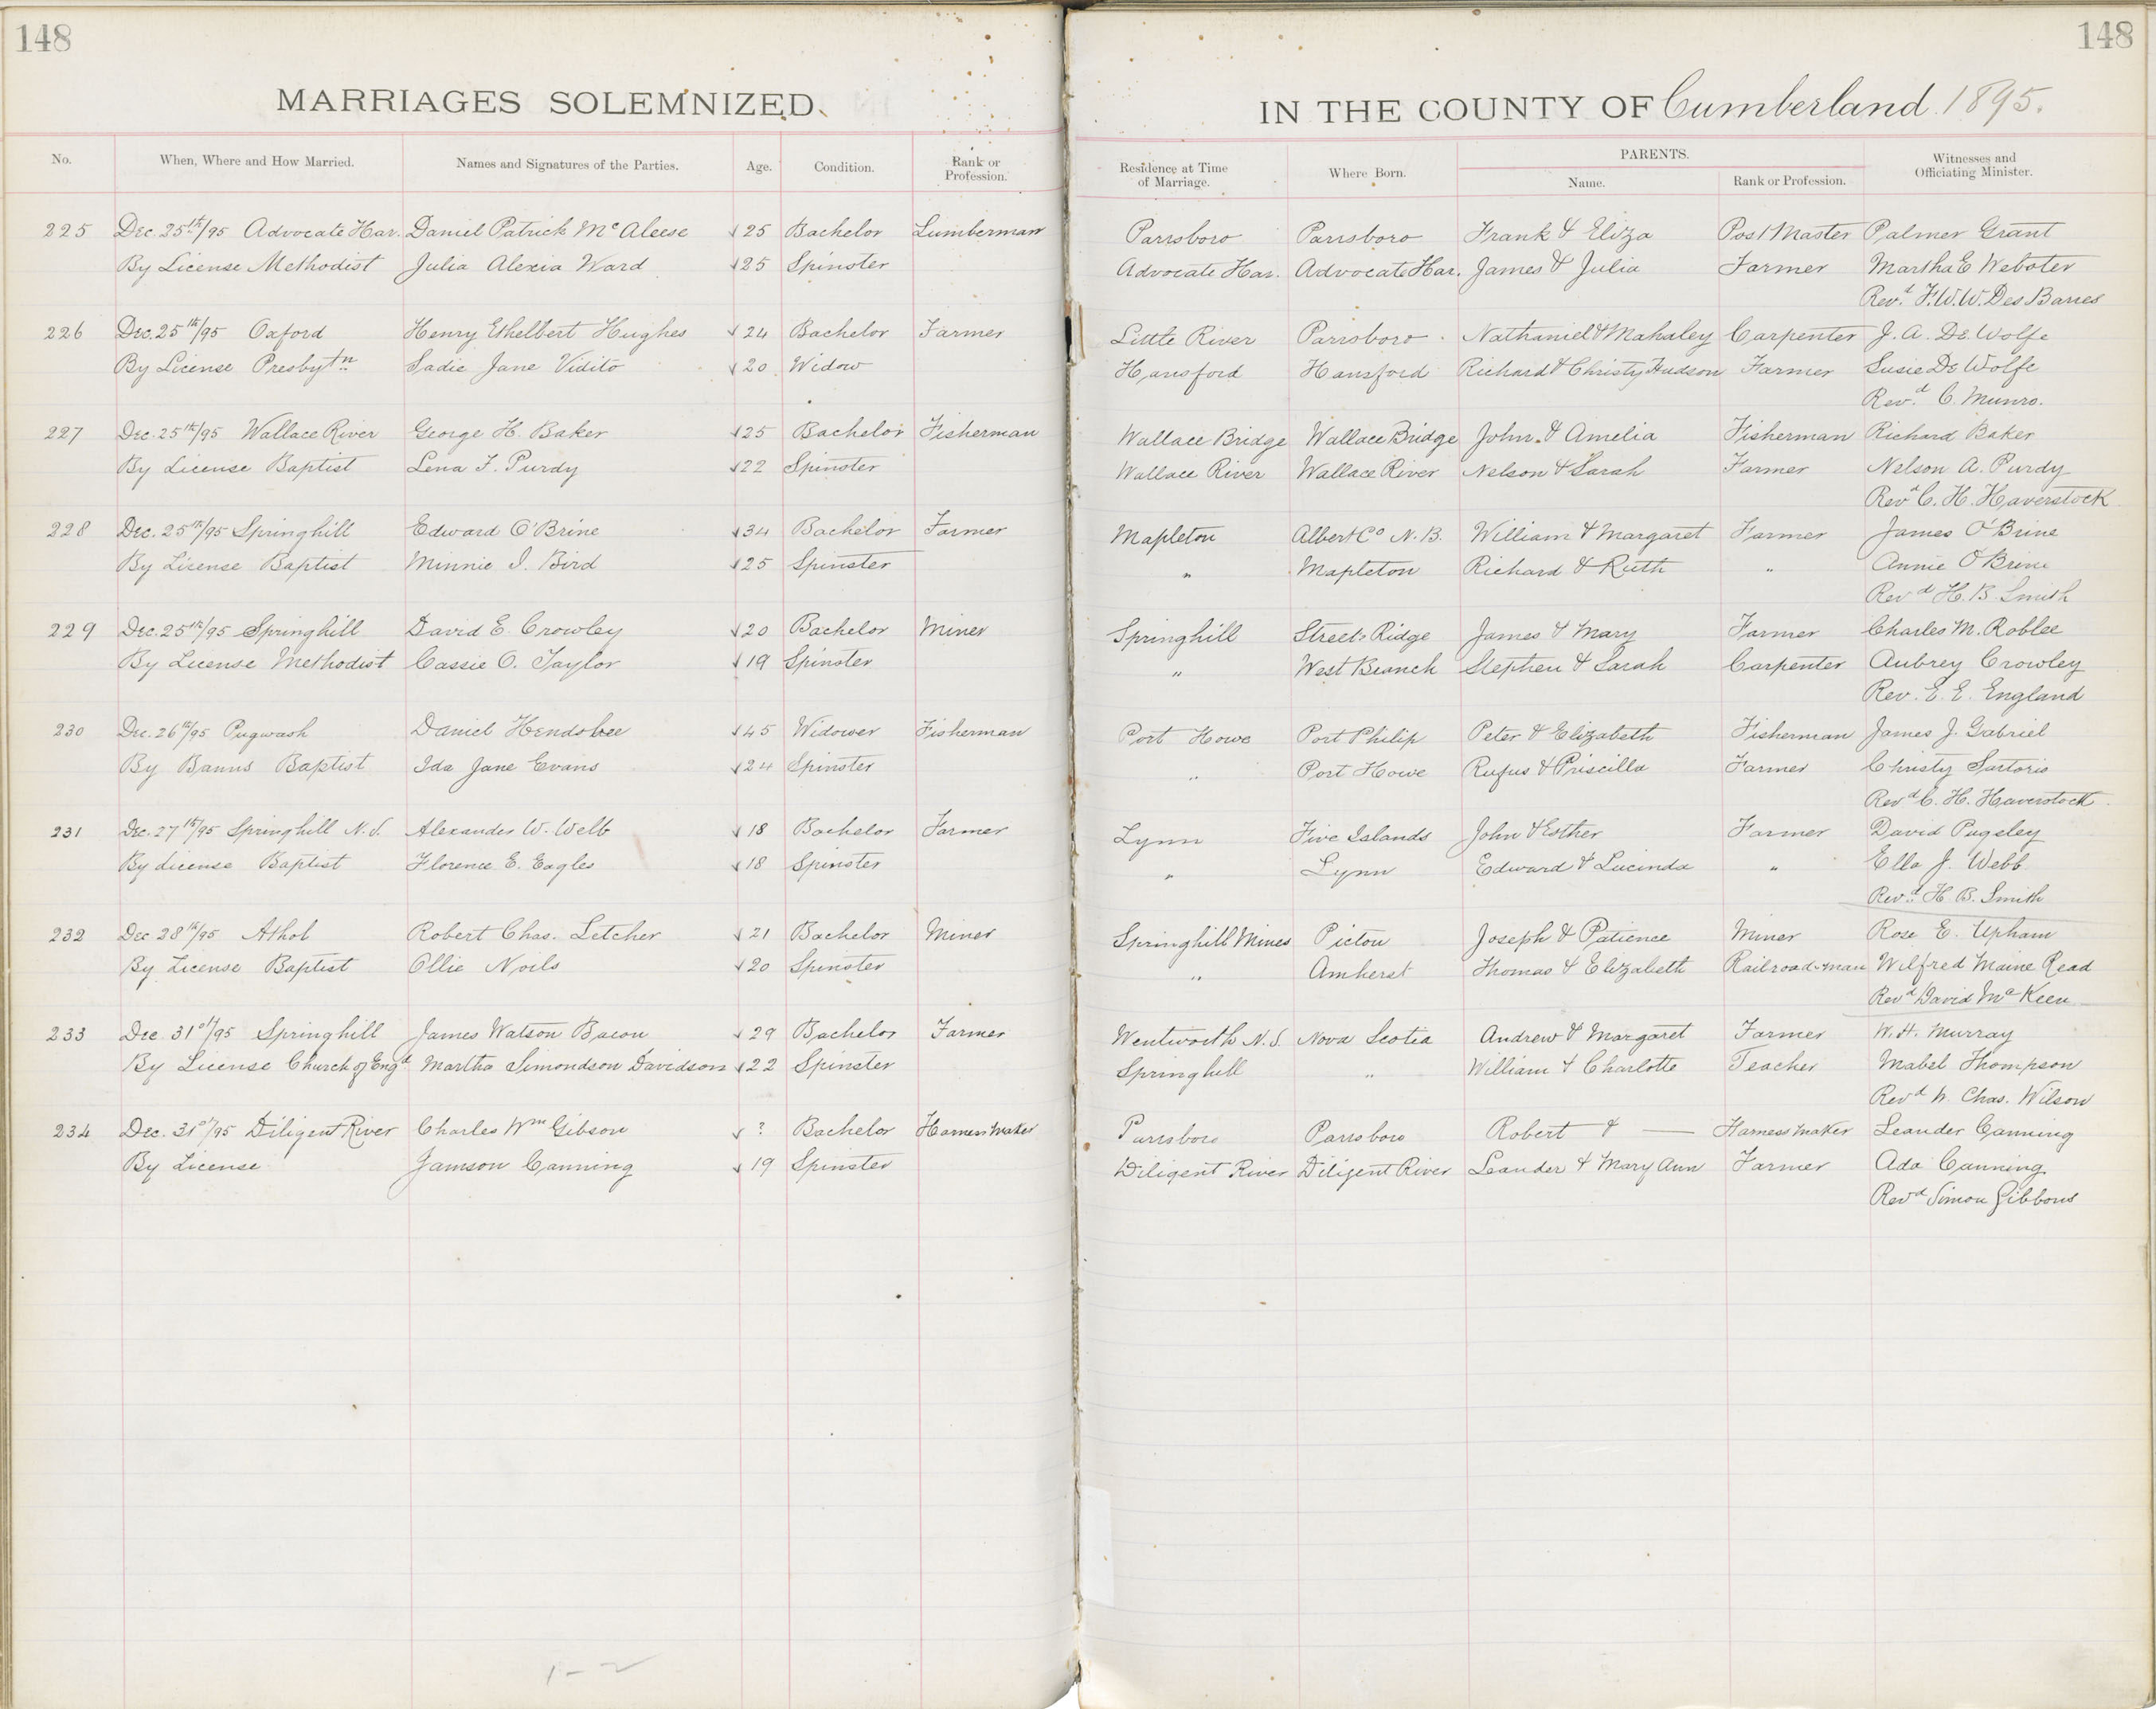 148
148
MARRIAGES SOLEMNIZED
IN THE COUNTY OF Cumberland 1895.
No. When, Where and How Married. Names and Signatures of the Parties. Age. Condition. Rank or Profession. Residence at Time of Marriage. Where Born. PARENTS. Name. Rank or Profession. Witnesses and Officiating Minister.
225 Dec. 25th/95 Advocate Har. Daniel Patrick McAleese √25 Bachelor Lumberman Parrsboro Parrsboro Frank & Eliza Post Master Palmer Grant
By License Methodist Julia Alexia Ward √25 Spinster Advocate Har. Advocate Har. James & Julia Farmer Martha E Webster
Revd. F.W.W. Des Barres
226 Dec. 25th/95 Oxford Henry Ethelbert Hughes √24 Bachelor Farmer Little River Parrsboro Nathaniel & Mahaley Carpenter J. A. DeWolfe
By License Presbytn Sadie Jane Vidito √20 Widow Hansford Hansford Richard & Christy Hudson Farmer Susie DeWolfe
Revd. C. Munro.
227 Dec. 25th/95 Wallace River George H. Baker √25 Bachelor Fisherman Wallace Bridge Wallace Bridge John & Amelia Fisherman Richard Baker
By License Baptist Lena F. Purdy √22 Spinster Wallace River Wallace River Nelson & Sarah Farmer Nelson A. Purdy
Revd C. H. Haverstock
228 Dec. 25th/95 Springhill Edward O'Brine √34 Bachelor Farmer Mapleton Albert Co N.B. William & Margaret Farmer James O'Brine
By License Baptist Minnie I. Bird √25 Spinster " Mapleton Richard & Ruth " Annie O'Brine
Revd H. B. Smith
229 Dec. 25th/95 Springhill David E. Crowley √20 Bachelor Miner Springhill Streets Ridge James & Mary Farmer Charles M. Roblee
By License Methodist Cassie O. Taylor √19 Spinster " West Branch Stephen & Sarah Carpenter Aubrey Crowley
Rev. E. E. England
230 Dec. 26th/95 Pugwash Daniel Hendsbee √45 Widower Fisherman Port Howe Port Philip Peter & Elizabeth Fisherman James J. Gabriel
By Banns Baptist Ida Jane Evans √24 Spinster " Port Howe Rufus & Priscilla Farmer Christy Sartoris
Revd C. H. Haverstock
231 Dec. 27th/95 Springhill N.S. Alexander W. Welb √18 Bachelor Farmer Lynn Five Islands John & Esther Farmer David Pugsley
By License Baptist Florence E. Eagles √18 Spinster " Lynn Edward & Lucinda " Ella J. Webb
Revd. H. B. Smith
232 Dec 28th/95 Athol Robert Chas. Letcher √21 Bachelor Miner Springhill Mines Pictou Joseph & Patience Miner Rose E. Upham
By License Baptist Ollie Noils √20 Spinster " Amherst Thomas & Elizabeth Railroad-man Wilfred Maine Read
Revd David McKeen
233 Dec 31st/95 Springhill James Watson Bacon √29 Bachelor Farmer Wentworth N.S. Nova Scotia Andrew & Margaret Farmer W. H. Murray
By License Church of Engd Martha Simondson Davidson √22 Spinster Springhill " William & Charlotte Teacher Mabel Thompson
Revd W. Chas. Wilson
234 Dec. 31st/95 Diligent River Charles Wm Gibson √ ? Bachelor Harness Maker Parrsboro Parrsboro Robert & — Harness Maker Leander Canning
By License Jamson Canning √19 Spinster Diligent River Diligent River Leander & Mary Ann Farmer Ada Canning
Revd Simon Gibbons
1 - 2